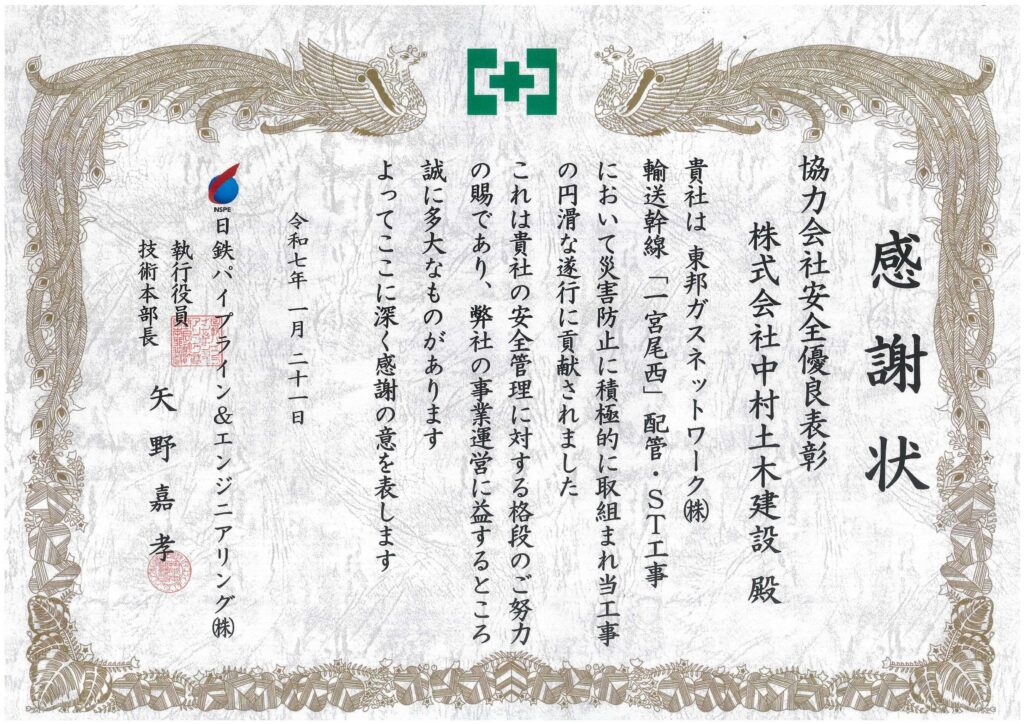 感謝状
協力会社安全優良表彰
株式会社中村土木建設 殿
貴社は 東邦ガスネットワーク㈱
輸送幹線「一宮尾西」配管・ST工事
において災害防止に積極的に取組まれ当工事
の円滑な遂行に貢献されました
これは貴社の安全管理に対する格段のご努力
の賜であり、弊社の事業運営に益するところ
誠に多大なものがあります
よってここに深く感謝の意を表します
令和七年 一月 二十一日
NSPE
日鉄パイプライン&エンジニアリング㈱
執行役員
技術本部長
矢野嘉孝